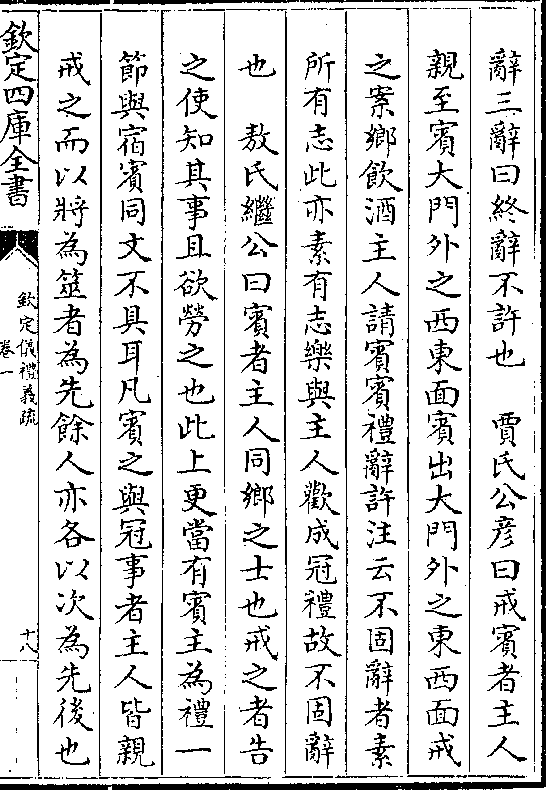 辭三辭曰終辭不許也　賈氏公彦曰戒賓者主人
親至賓大門外之西東面賓出大門外之東西面戒
之案鄉飲酒主人請賓賓禮辭許注云不固辭者素
所有志此亦素有志樂與主人歡成冠禮故不固辭
也　敖氏繼公曰賓者主人同鄉之士也戒之者告
之使知其事且欲勞之也此上更當有賓主為禮一
節與宿賓同文不具耳凡賓之與冠事者主人皆親
戒之而以將為筮者為先餘人亦各以次為先後也
欽定四庫全書
欽定儀禮義疏
卷一
十八